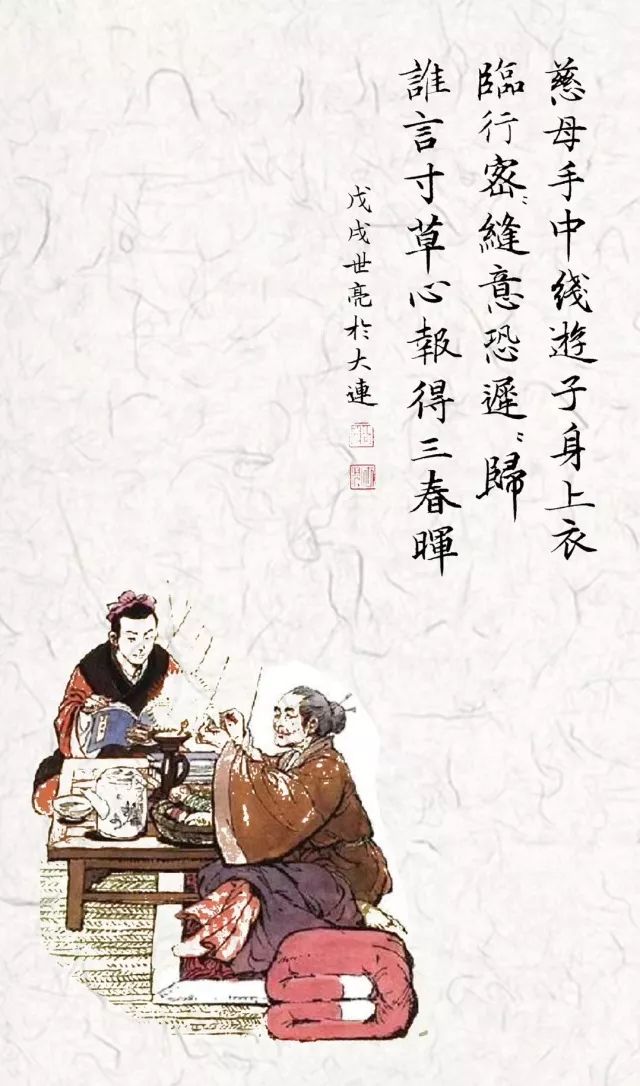 慈母手中线遊子身上衣
臨行密〻縫意恐遲〻歸
誰言寸草心報得三春暉
戊戌世亮於大連